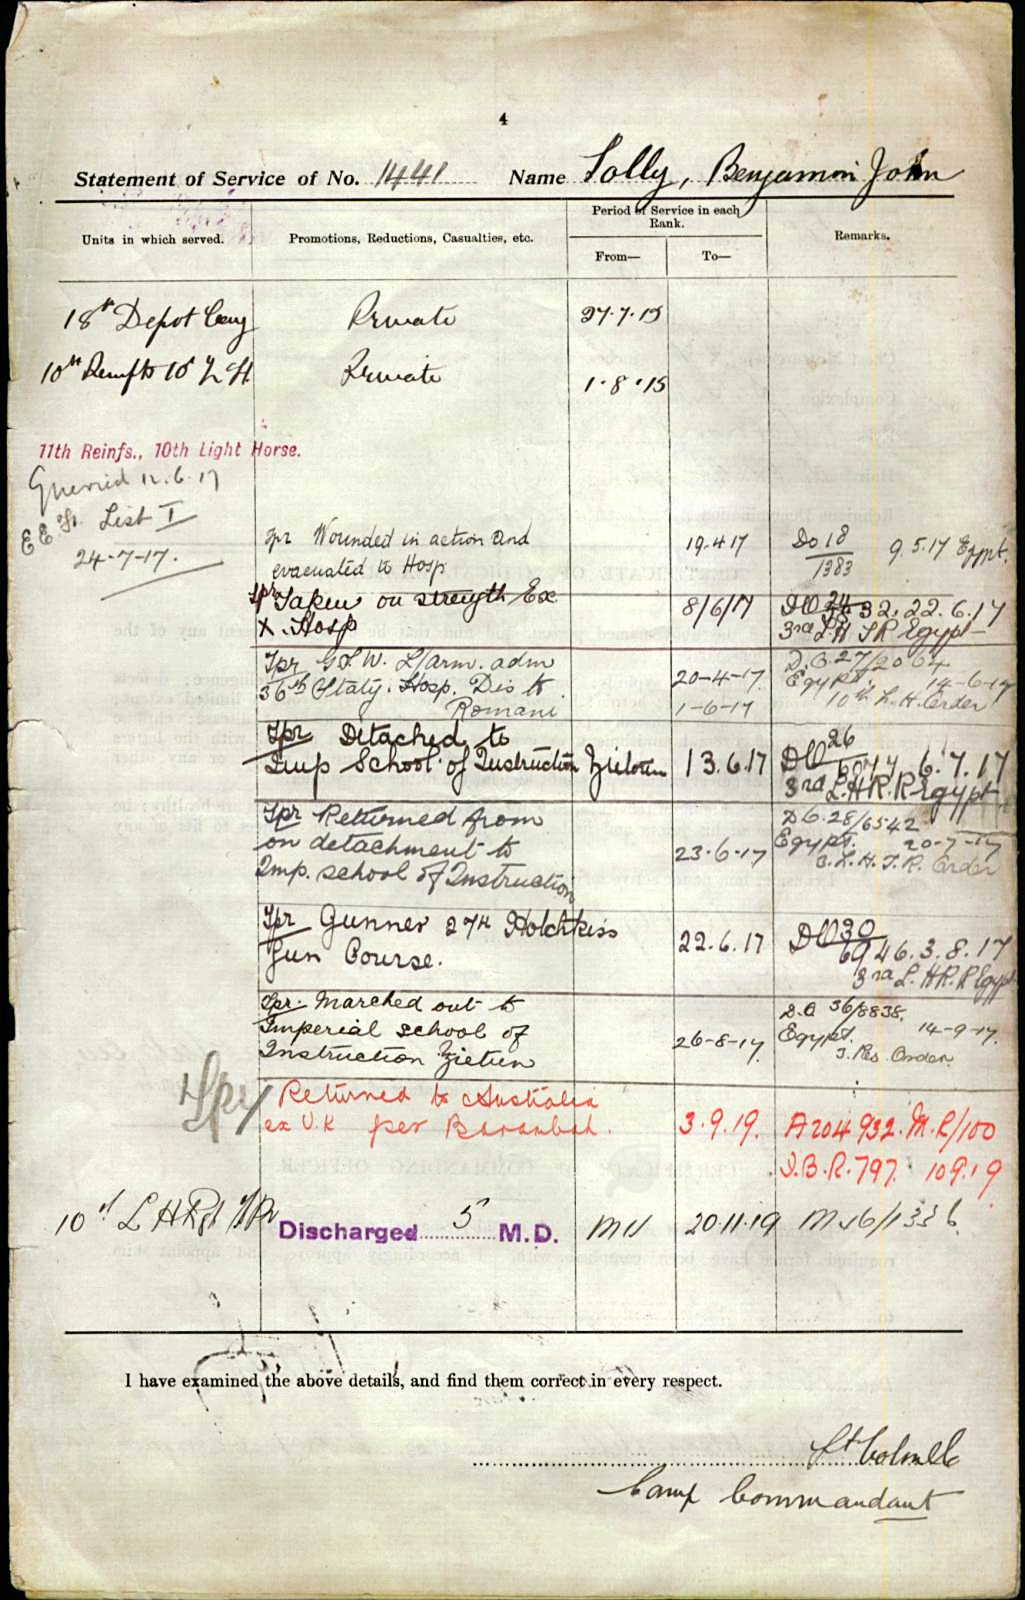 4
Statement of Service of No. 1441 Name Solly, Benjamin John
Units in which served.
Promotions, Reductions, Casualties, etc.
Period of Service in each Rank.
From—
To—
Remarks.
18th Depot Coy Private 27.7.15
10th Reinfts 10th L H Private 1.8.15
11th Reinfs., 10th Light Horse.
Queried 12.6.17
List I
24-7-17.
Tpr Wounded in action and 19.4.17 DO 18 9.5.17 Egypt.
evacuated to Hosp 1383
Tpr Taken on strength Ex 8/6/17 DO 24 32, 22.6.17
X. Hosp 3rd LH TR Egypt
Tpr G.S.W. L/arm. adm D.O. 27/2064
36th Staty. Hosp. Dis to 20-4-17. Egypt. 14-6-17
Romani 1-6-17 10th L.H. Order
Tpr Detached to DO 26
Imp School of Instruction Zietoun 13.6.17 6077 6.7.17
3rd L.H.R. R Egypt
Tpr Returned from D.O. 28/6542
on detachment to 23-6-17 Egypt. 20-7-17
Imp. school of Instruction 3. L. H. T. R. Order
Tpr Gunner 27th Hotchkiss 22.6.17 DO 30
Gun Course. 6946. 3.8.17
3rd L. HR. R Egypt
Tpr. Marched out to D.O 36/8838.
Imperial school of 26-8-17. Egypt. 14-9-17.
Instruction Zietun 3. Res. Order
Tpr Returned to Australia 3.9.19. A204 932. M.R/100
ex U.K per Barambah. I.B.R. 797. 10919
10th L H Rgt TPR Discharged 5 M.D. MU 20.11.19
I have examined the above details, and find them correct in every respect.
Lt Col
Camp Commandant